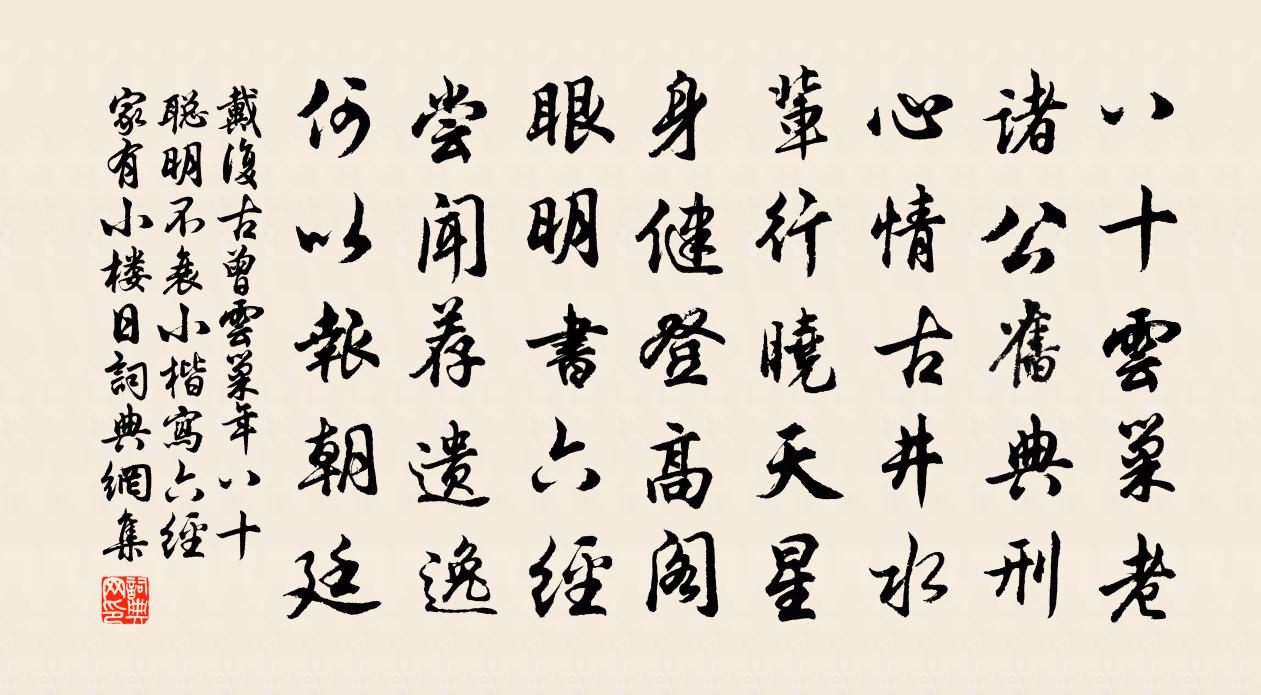 八十雲巢老
诸公舊典刑
心情古井水
輩行曉天星
身健登高阁
眼明書六經
尝闻荐遗逸
何以報朝廷
戴復古曾雲巢年八十
聪明不衰小楷寫六經
家有小楼日詞典網集
詞典網印